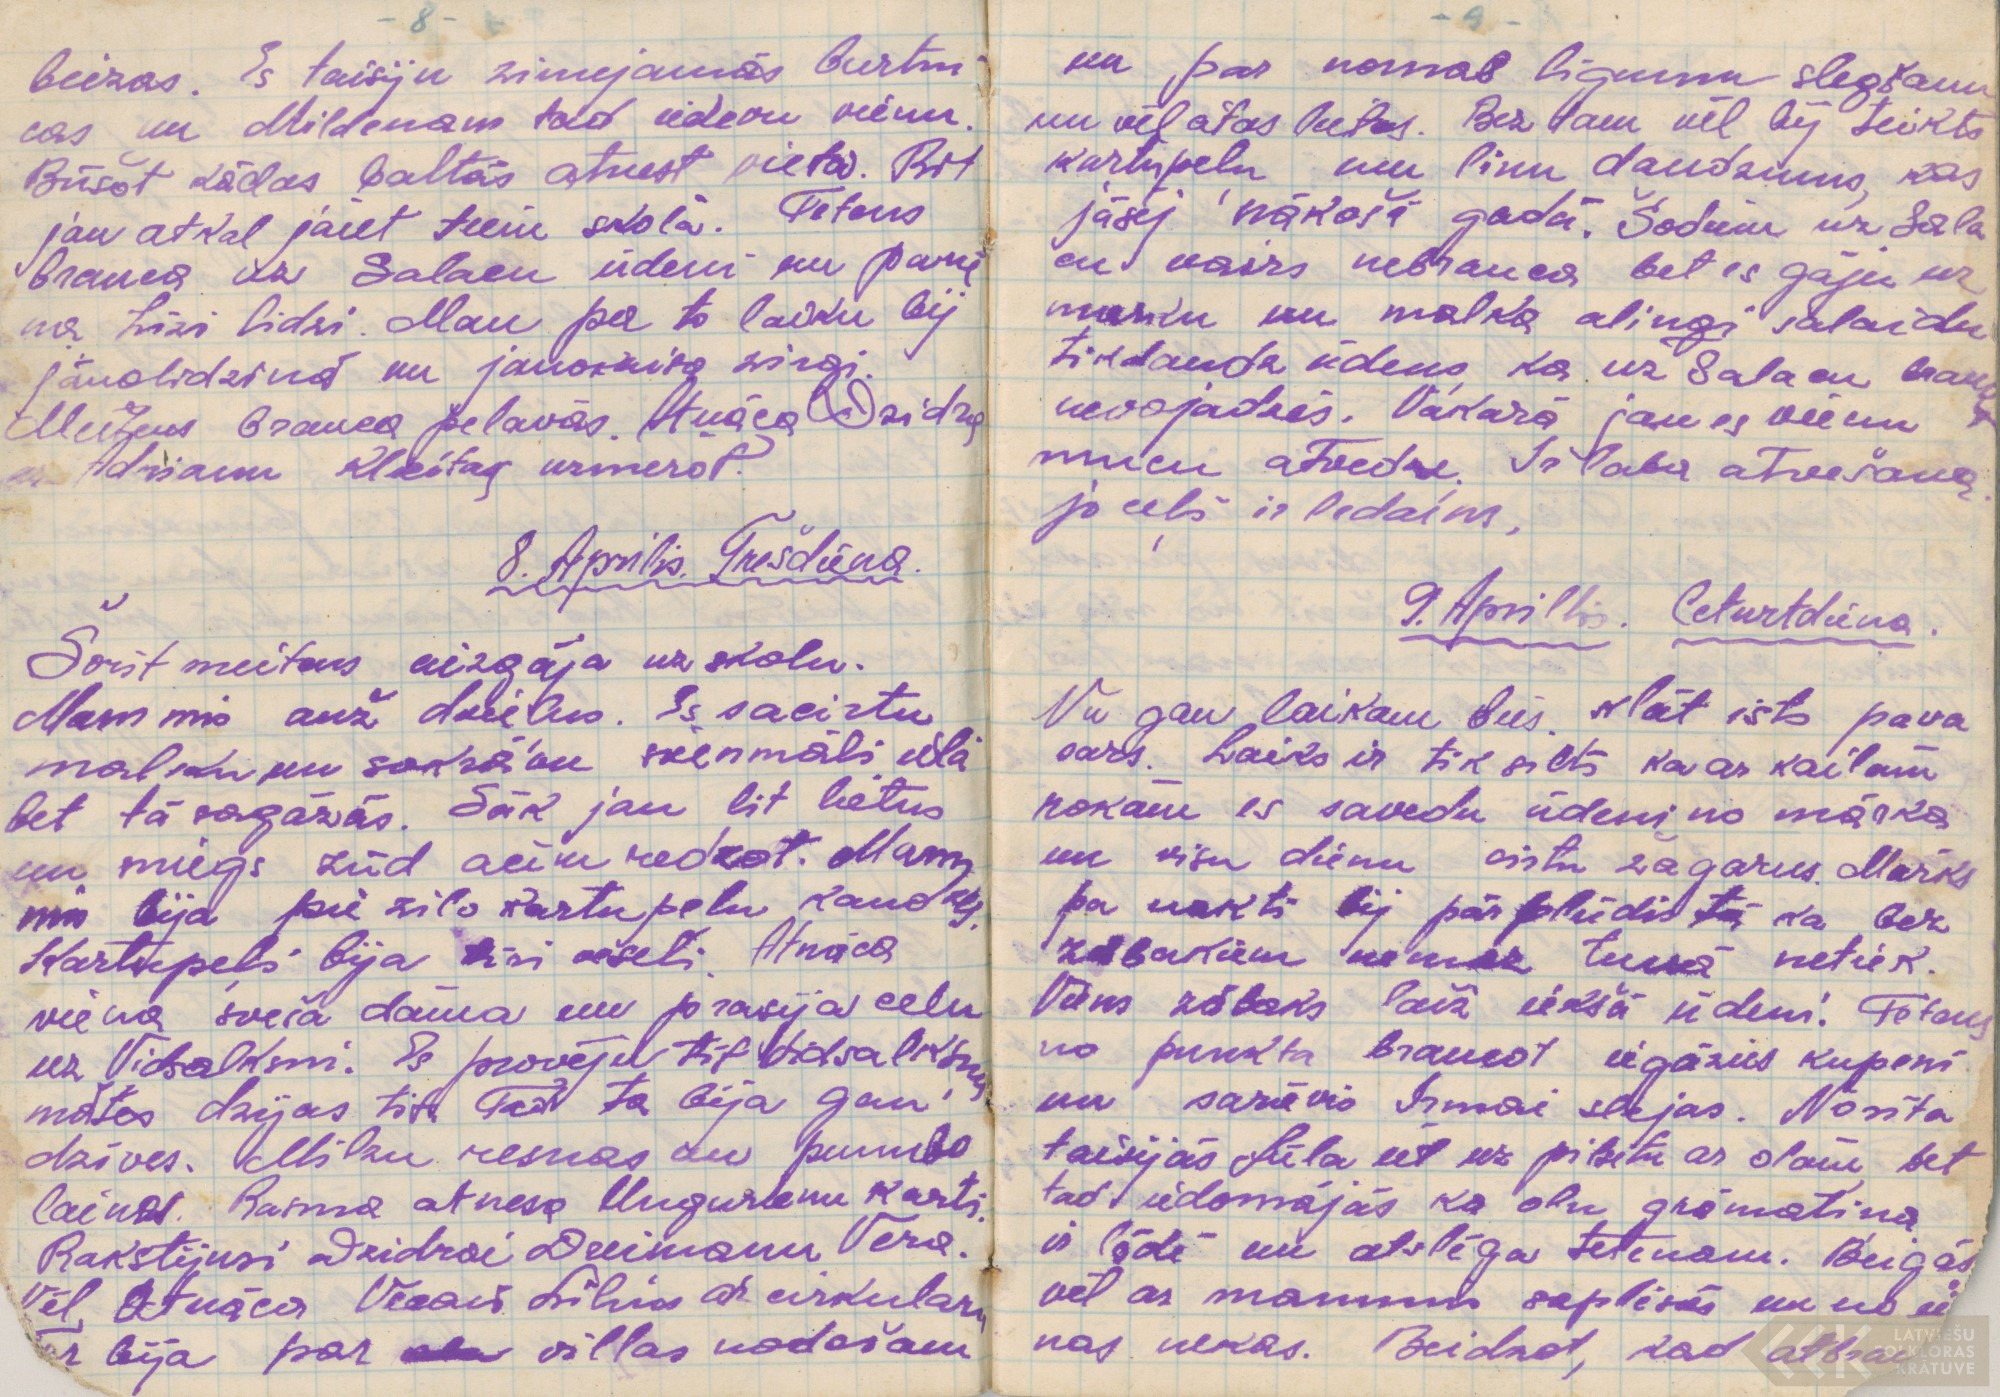 - 8 -
beizas. Es taisiju zimejamās burtni
cas un Mildenam tad iedevu vienu.
Būšot kādas baltās atnest vietā. Rit
jau atkal jāiet tiem skolā. Tetens
brauca uz Salacu ūdeni un paņē
ma Līzi līdzi. Man pa to laiku bij
jānolidzina un janokaisa zirgi.
Mežens brauca pelavās. Atnāca Dzidra
Adrianu kleitas uzmērot.
8. Aprilis. Trešdiena.
Šorit meitens aizgāja uz skolu.
Mammis auž dvielus. Es sacirtu
malku un sakrāvu sienmali vēlā
bet tā sagāzās. Sāk jau lit lietus
un sniegs zūd acim redzot. Mamm
mis bija pie zilo kartupelu kaudzes.
Kartupeli bija tīri veseli. Atnāca
viena sveša dāma un prasija celu
uz Vidsalksmi. Es
mātes dzijas tik Tad ta bija gan
dzives. Milzu resnas un pumbo
lainas. Rasma atnesa Ungurenu karti.
Rakstijusi Dzidrai Dreimanu Vera.
Vēl, Atnāca Vecais Silnis ar cirkularu
ar bija par villas nodošanu
- 9 -
un par nomas ligumu slegšanu
un vēl ātas lietas. Bez tam vēl bij teikts
kartupelu un linu daudzums, kas
jāsej nākošā godā. Šodien uz Sala
cu vairs nebrauca bet es gāju uz
marku un malkā alingi salaidu
tikdaudz ūdens ka uz Salacu braukt
nevajadzēs. Vakarā jau es vienu
mucu atvedu. Ir laba atvešana
jo celš ir ledains,
9. Aprillis. Ceturtdiena.
Nu gan laikam būs klāt ists pava
sars. Laiks ir tik silts ka ar kailām
rokām es savedu ūdeni no mārka
un visu dienu cirtu žagarus. Marks
pa nakti bij pārplūdis tā ka bez
zābakiem nemaz tuvā netiek.
Viens zābaks laiž iekšā ūdeni. Tetens
no punkta braucot iegāzies kupenī
un sarāvis Irmai slejas. No rita
taisijās Lila iet uz pilsetu ar olām bet
tad iedomājās ka olu grāmatiņa
ir lādē un atslēga tetenam. Beigās
vēl ar mammu saplēsās un no ie
nas nekas. Beidzot, kad
LATVIEŠU
FOLKLORAS
KRĀTUVE